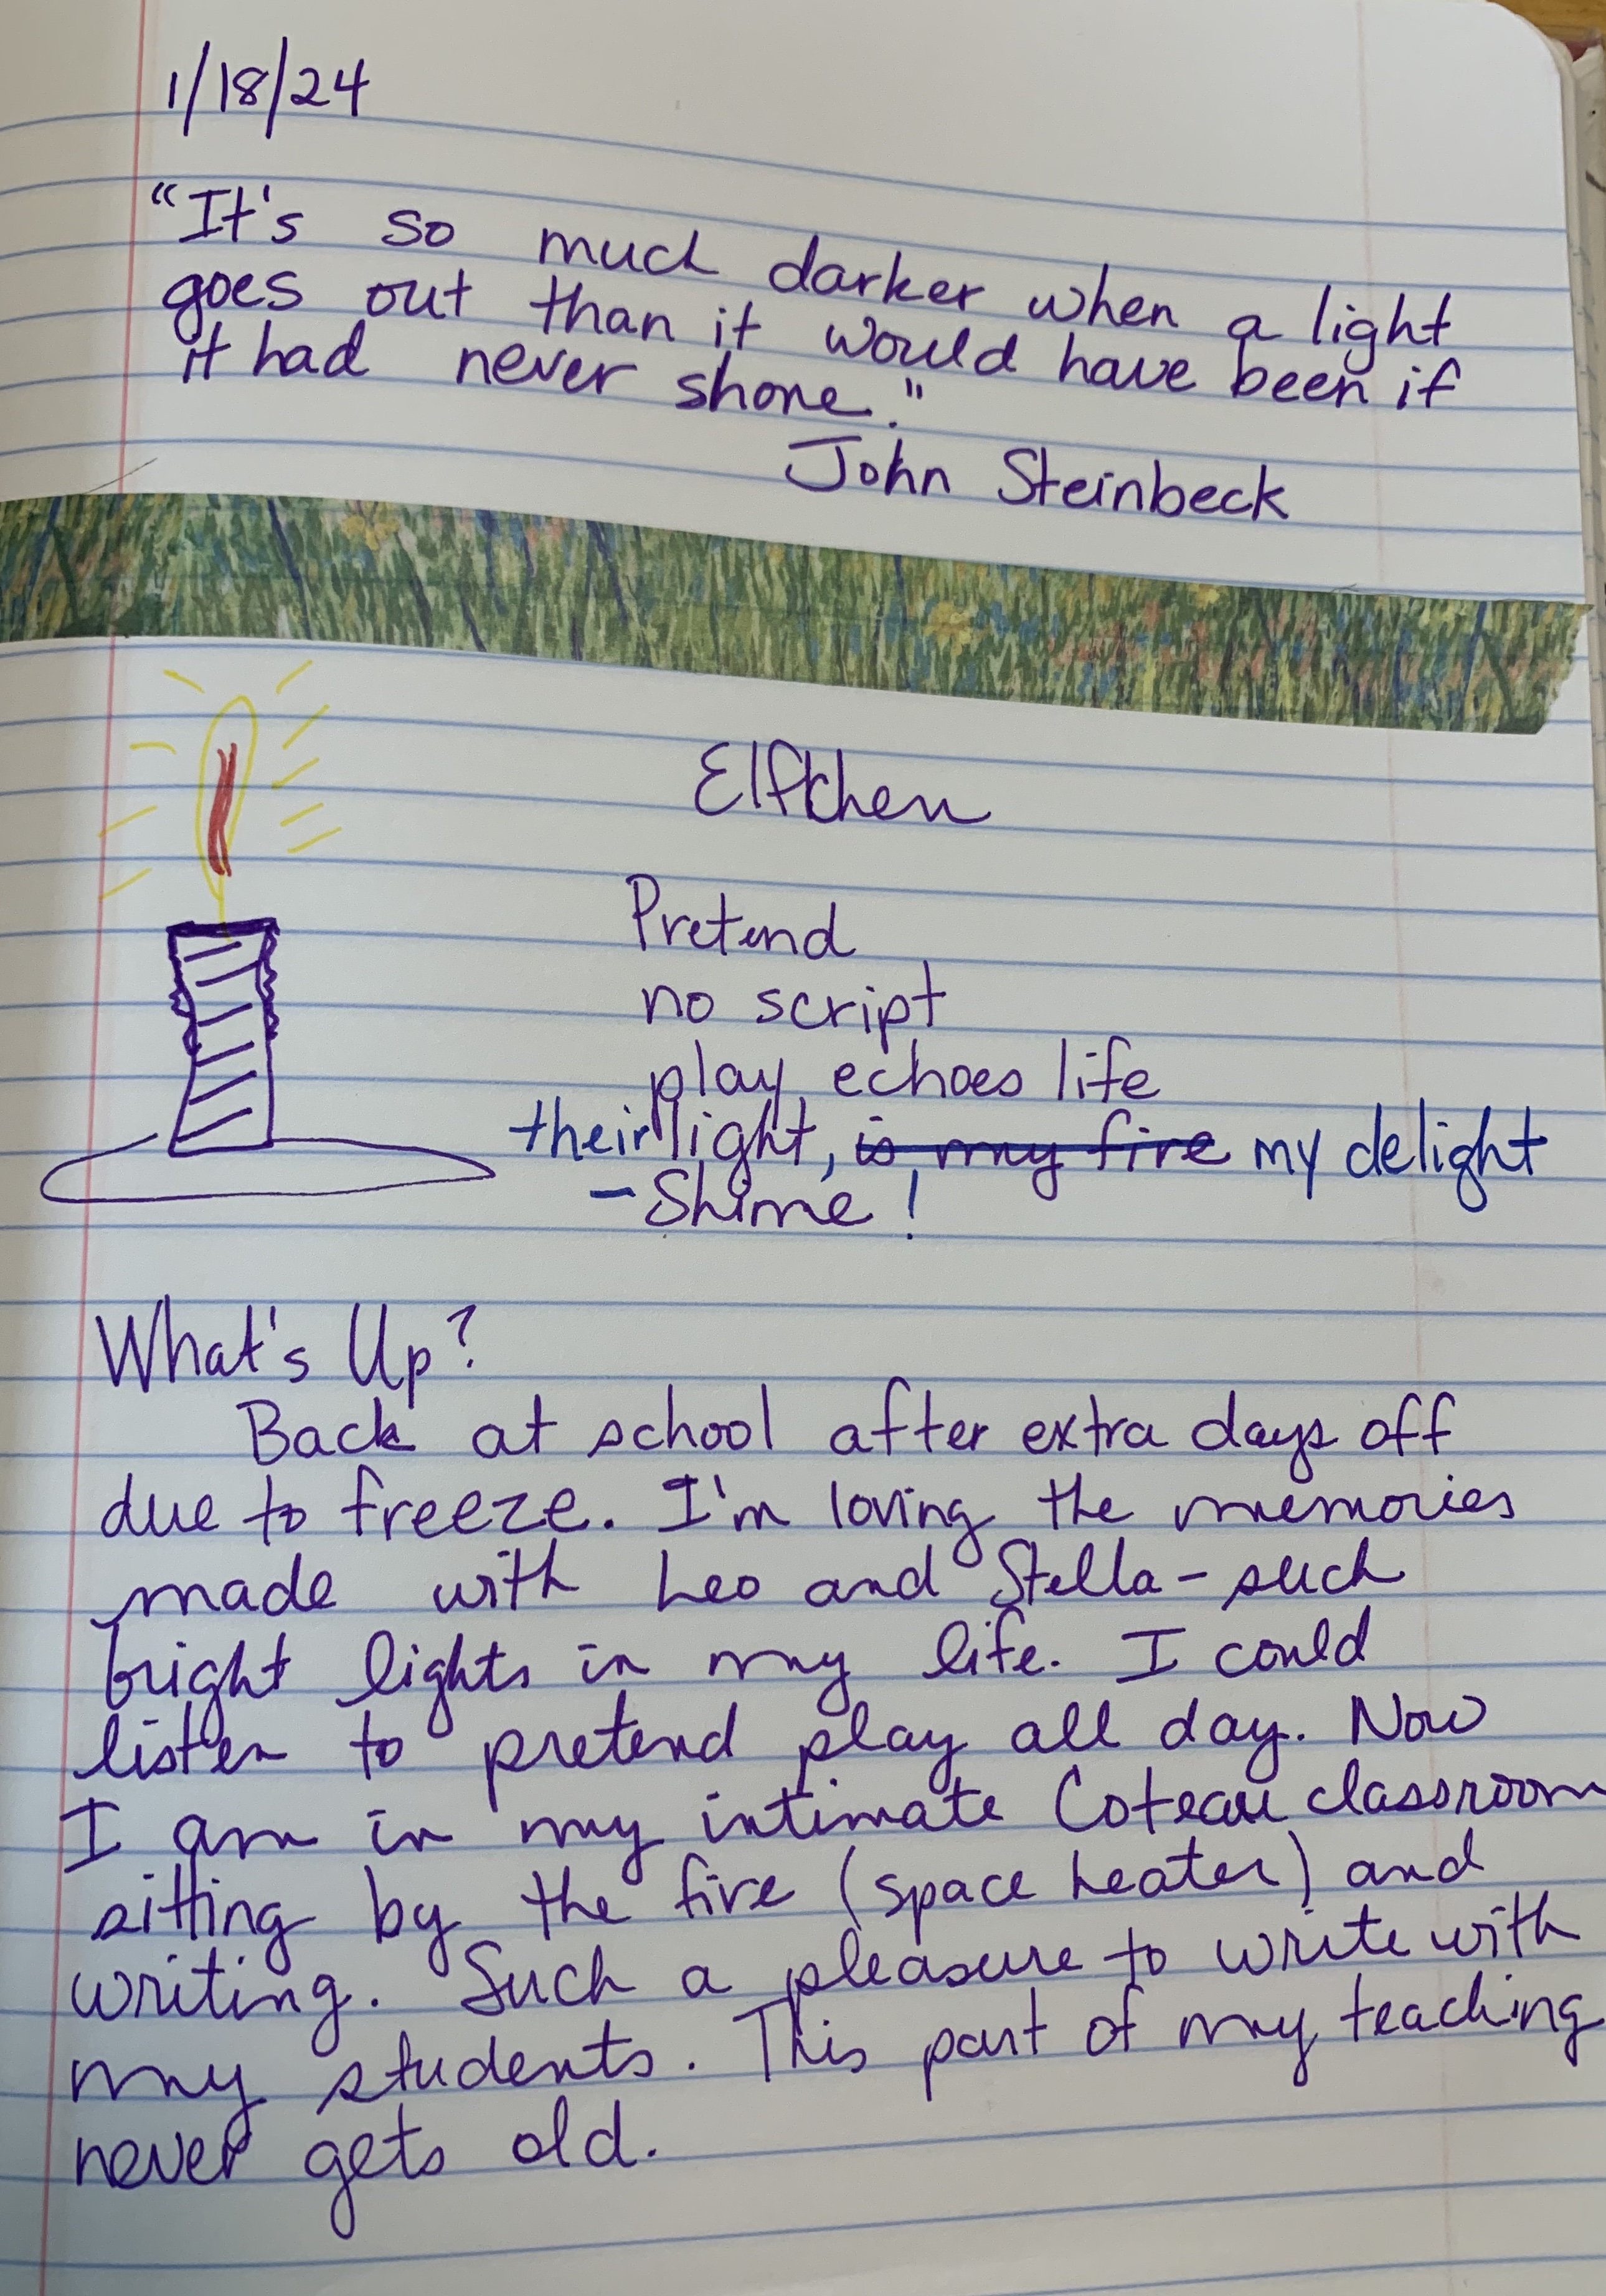 1/18/24
"It's so much darker when a light
goes out than it would have been if
it had never shone."
John Steinbeck
Elfchen
Pretend
no script
play echoes life
their light, is my fire my delight
- Shine!
What's Up?
Back at school after extra days off
due to freeze. I'm loving the memories
made with Leo and Stella - such
bright lights in my life. I could
listen to pretend play all day. Now
I am in my intimate Coteau classroom
sitting by the fire (space heater) and
writing. Such a pleasure to write with
my students. This part of my teaching
never gets old.